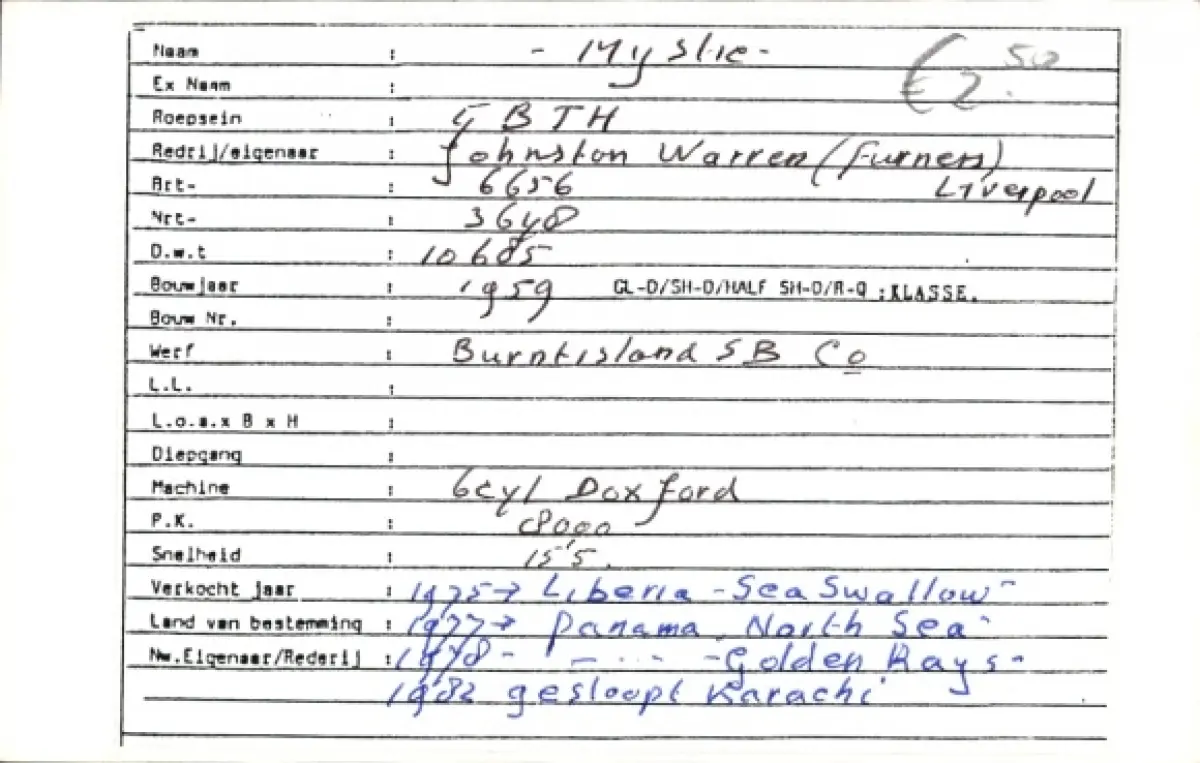 Naam : - Myslie - € 2.50
Ex Naam :
Roepsein : GBTH
Redrij/eigenaar : Johnston Warren (Furness)
Brt- : 6656 Liverpool
Nrt- : 3648
D.w.t : 10685
Bouwjaar : 1959 GL-D/SH-D/HALF SH-D/R-Q :KLASSE.
Bouw Nr. :
Werf : Burntisland SB Co
L.L. :
L.o.a.x B x H :
Diepgang :
Machine : 6cyl Doxford
P.K. : 8000
Snelheid : 15'5.
Verkocht jaar : 1975→ Liberia - Sea Swallow -
Land van bestemming : 1977→ Panama. North Sea -
Nw.Eigenaar/Rederij : 1978 - - ... - - Golden Rays -
1982 gesloopt Karachi